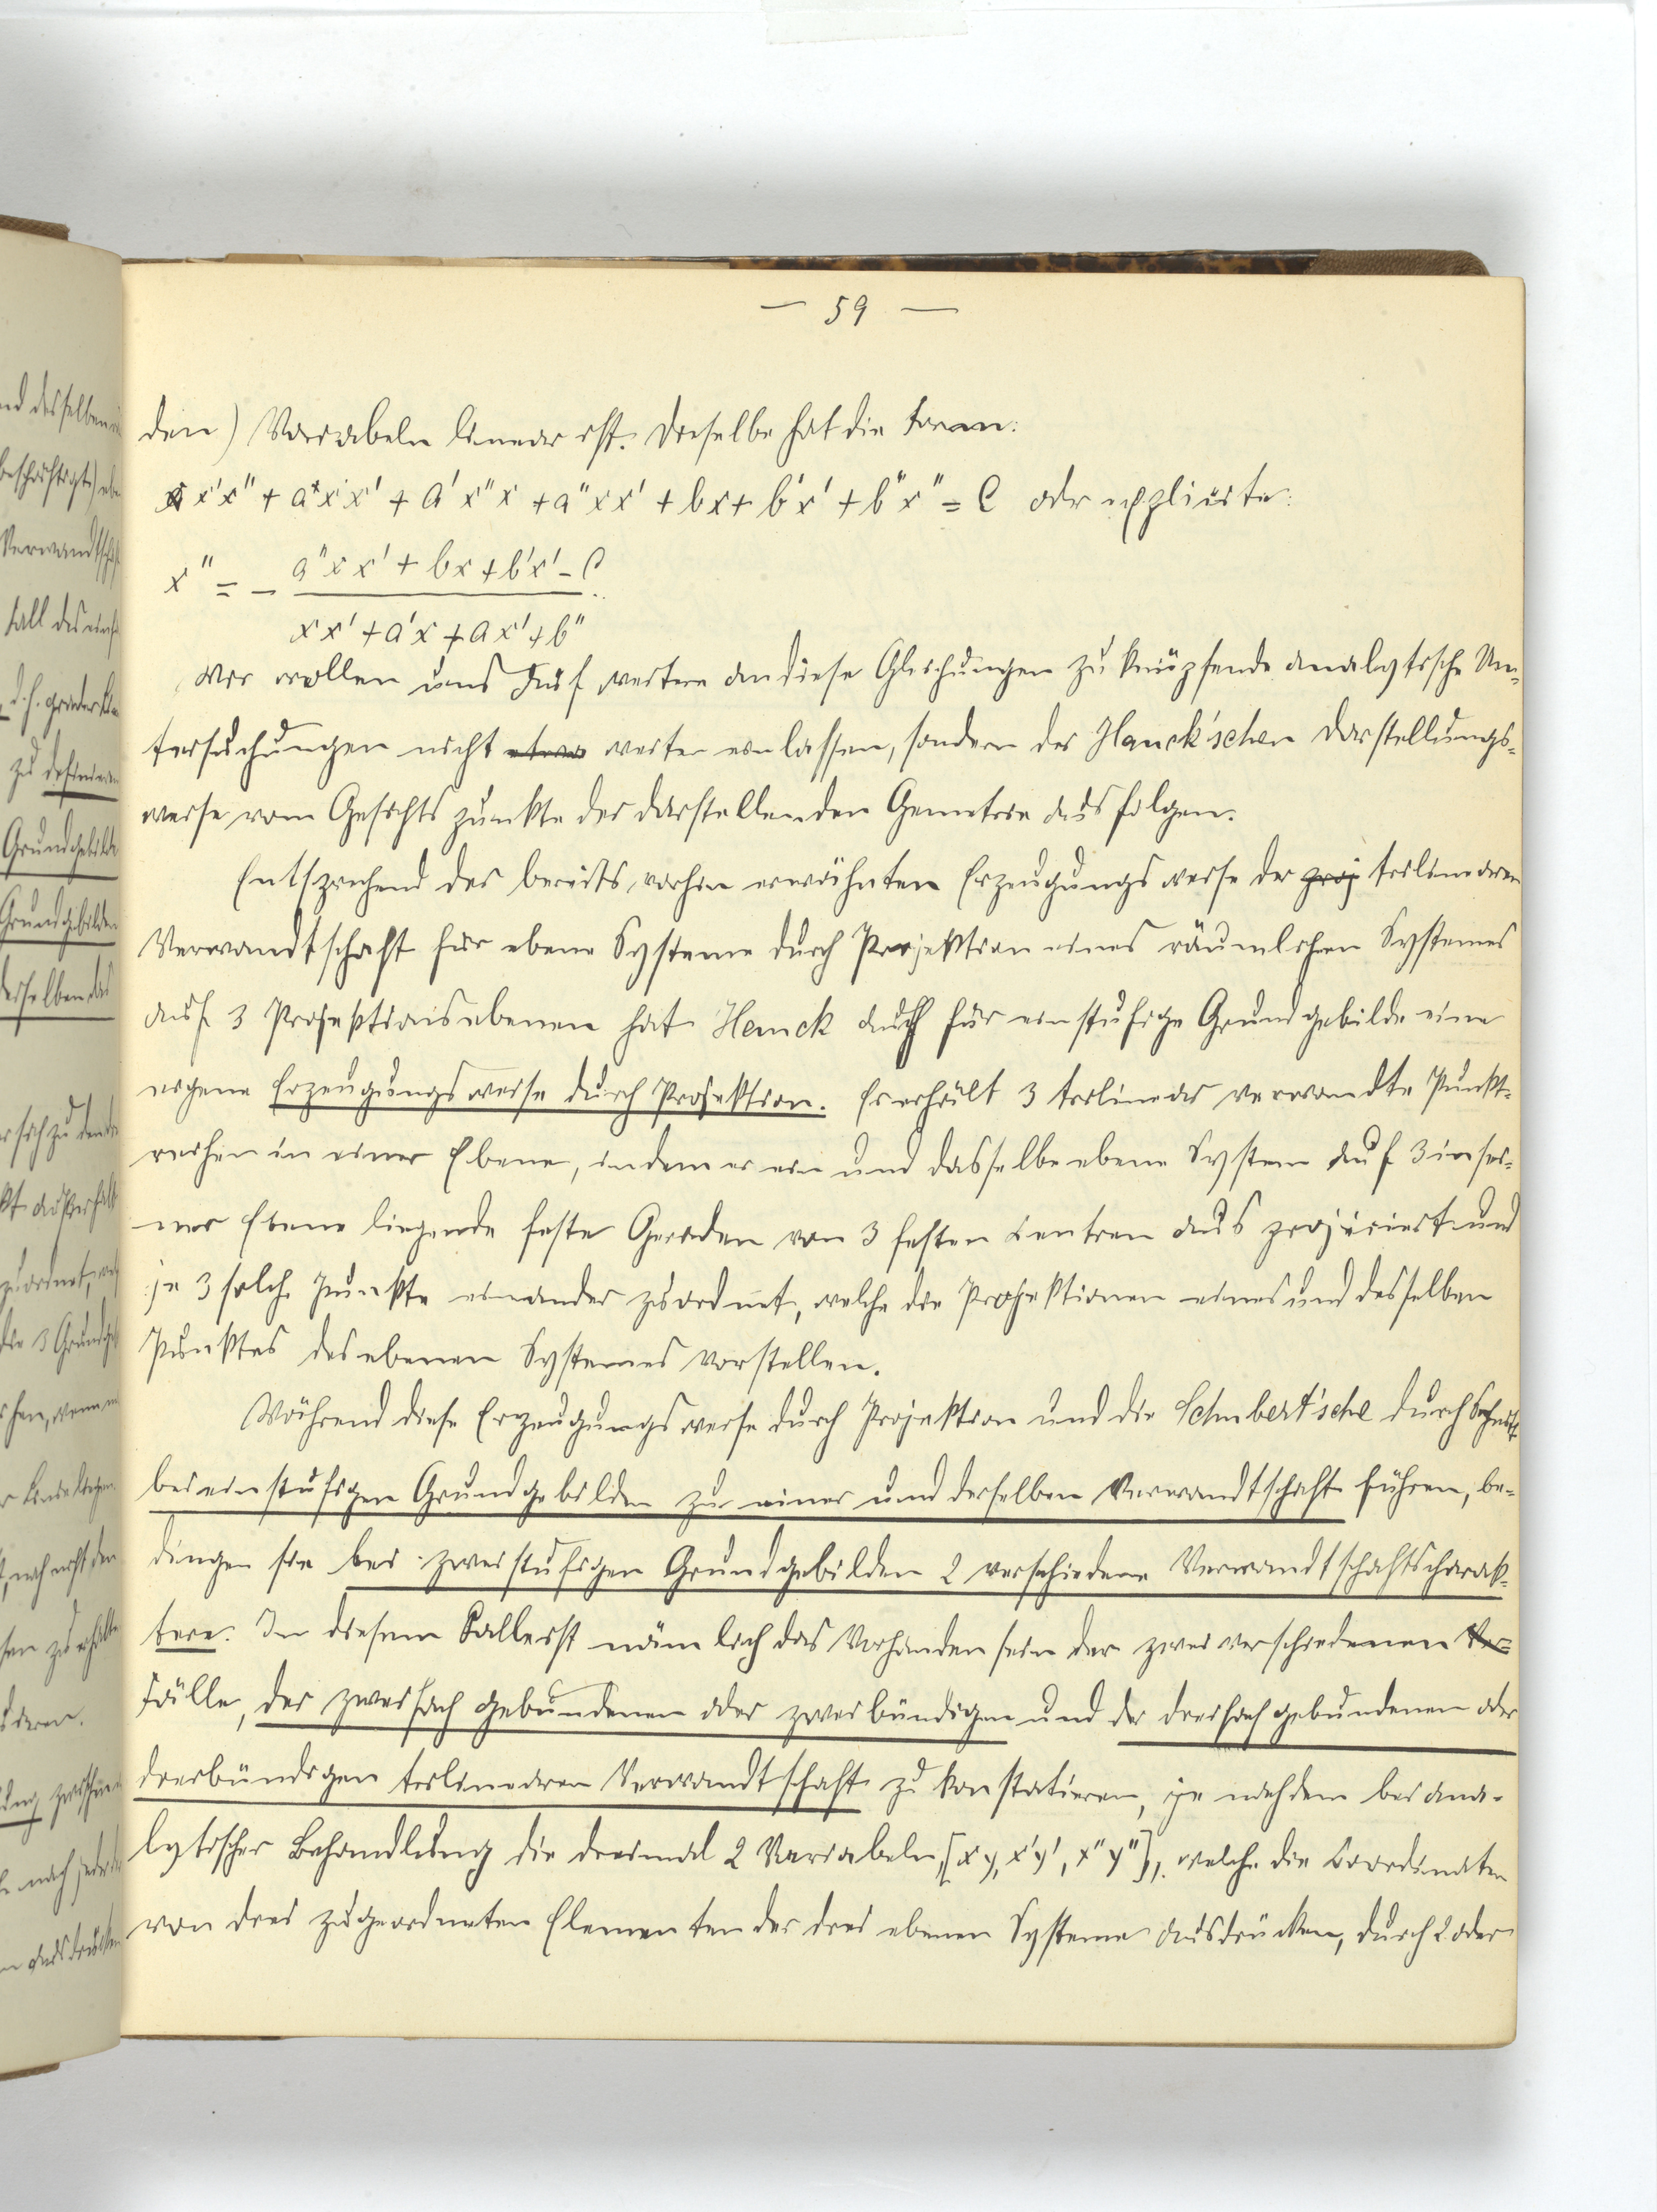 — 59 —
den) Variabeln linear ist. Dieselbe hat die Form:
x x'x" + a x'x" + a'x"x + a"xx' + bx + b'x' + b"x" = C oder explicite:
x" = - (a"xx' + bx + b'x' - C) / (xx' + a'x + ax' + b")
Wir wollen uns auf weitere an diese Gleichungen zu knüpfende analytische Un-
tersuchungen nicht etwa weiter einlassen, sondern der Hauck'schen Darstellungs-
weise vom Gesichtspunkte der darstellenden Geometrie aus folgen.
Entsprechend der bereits vorhin erwähnten Erzeugungsweise der proj trilinearen
Verwandtschaft für ebene Systeme durch Projektion eines räumlichen Systemes
auf 3 Projektionsebenen hat Hauck auch für einstufige Grundgebilde eine
eigene Erzeugungsweise durch Projektion. Er erhält 3 trilinear verwandte Punkt-
reihen in einer Ebene, indem er ein und dasselbe ebene System auf 3 in sei-
ner Ebene liegende feste Geraden von 3 festen Centren aus projiciert und
je 3 solche Punkte einander zuordnet, welche die Projektionen eines und desselben
Punktes des ebenen Systemes vorstellen.
Während diese Erzeugungsweise durch Projektion und die Schubert'sche durch Schnitt
bei einstufigen Grundgebilden zu einer und derselben Verwandtschaft führen, be-
dingen sie bei zweistufigen Grundgebilden 2 verschiedene Verwandtschaftscharak-
tere. In diesem Falle ist nämlich das Vorhandensein der zwei verschiedenen Ver-
Fälle, der zweifach gebundenen oder zweibündigen und der dreifach gebundenen oder
dreibündigen trilinearen Verwandtschaft zu konstatieren, je nachdem bei ana-
lytischer Behandlung die dreimal 2 Variabeln, [xy, x'y', x"y"], welche die Coordinaten
von drei zugeordneten Elementen der drei ebenen Systeme ausdrücken, durch 2 oder